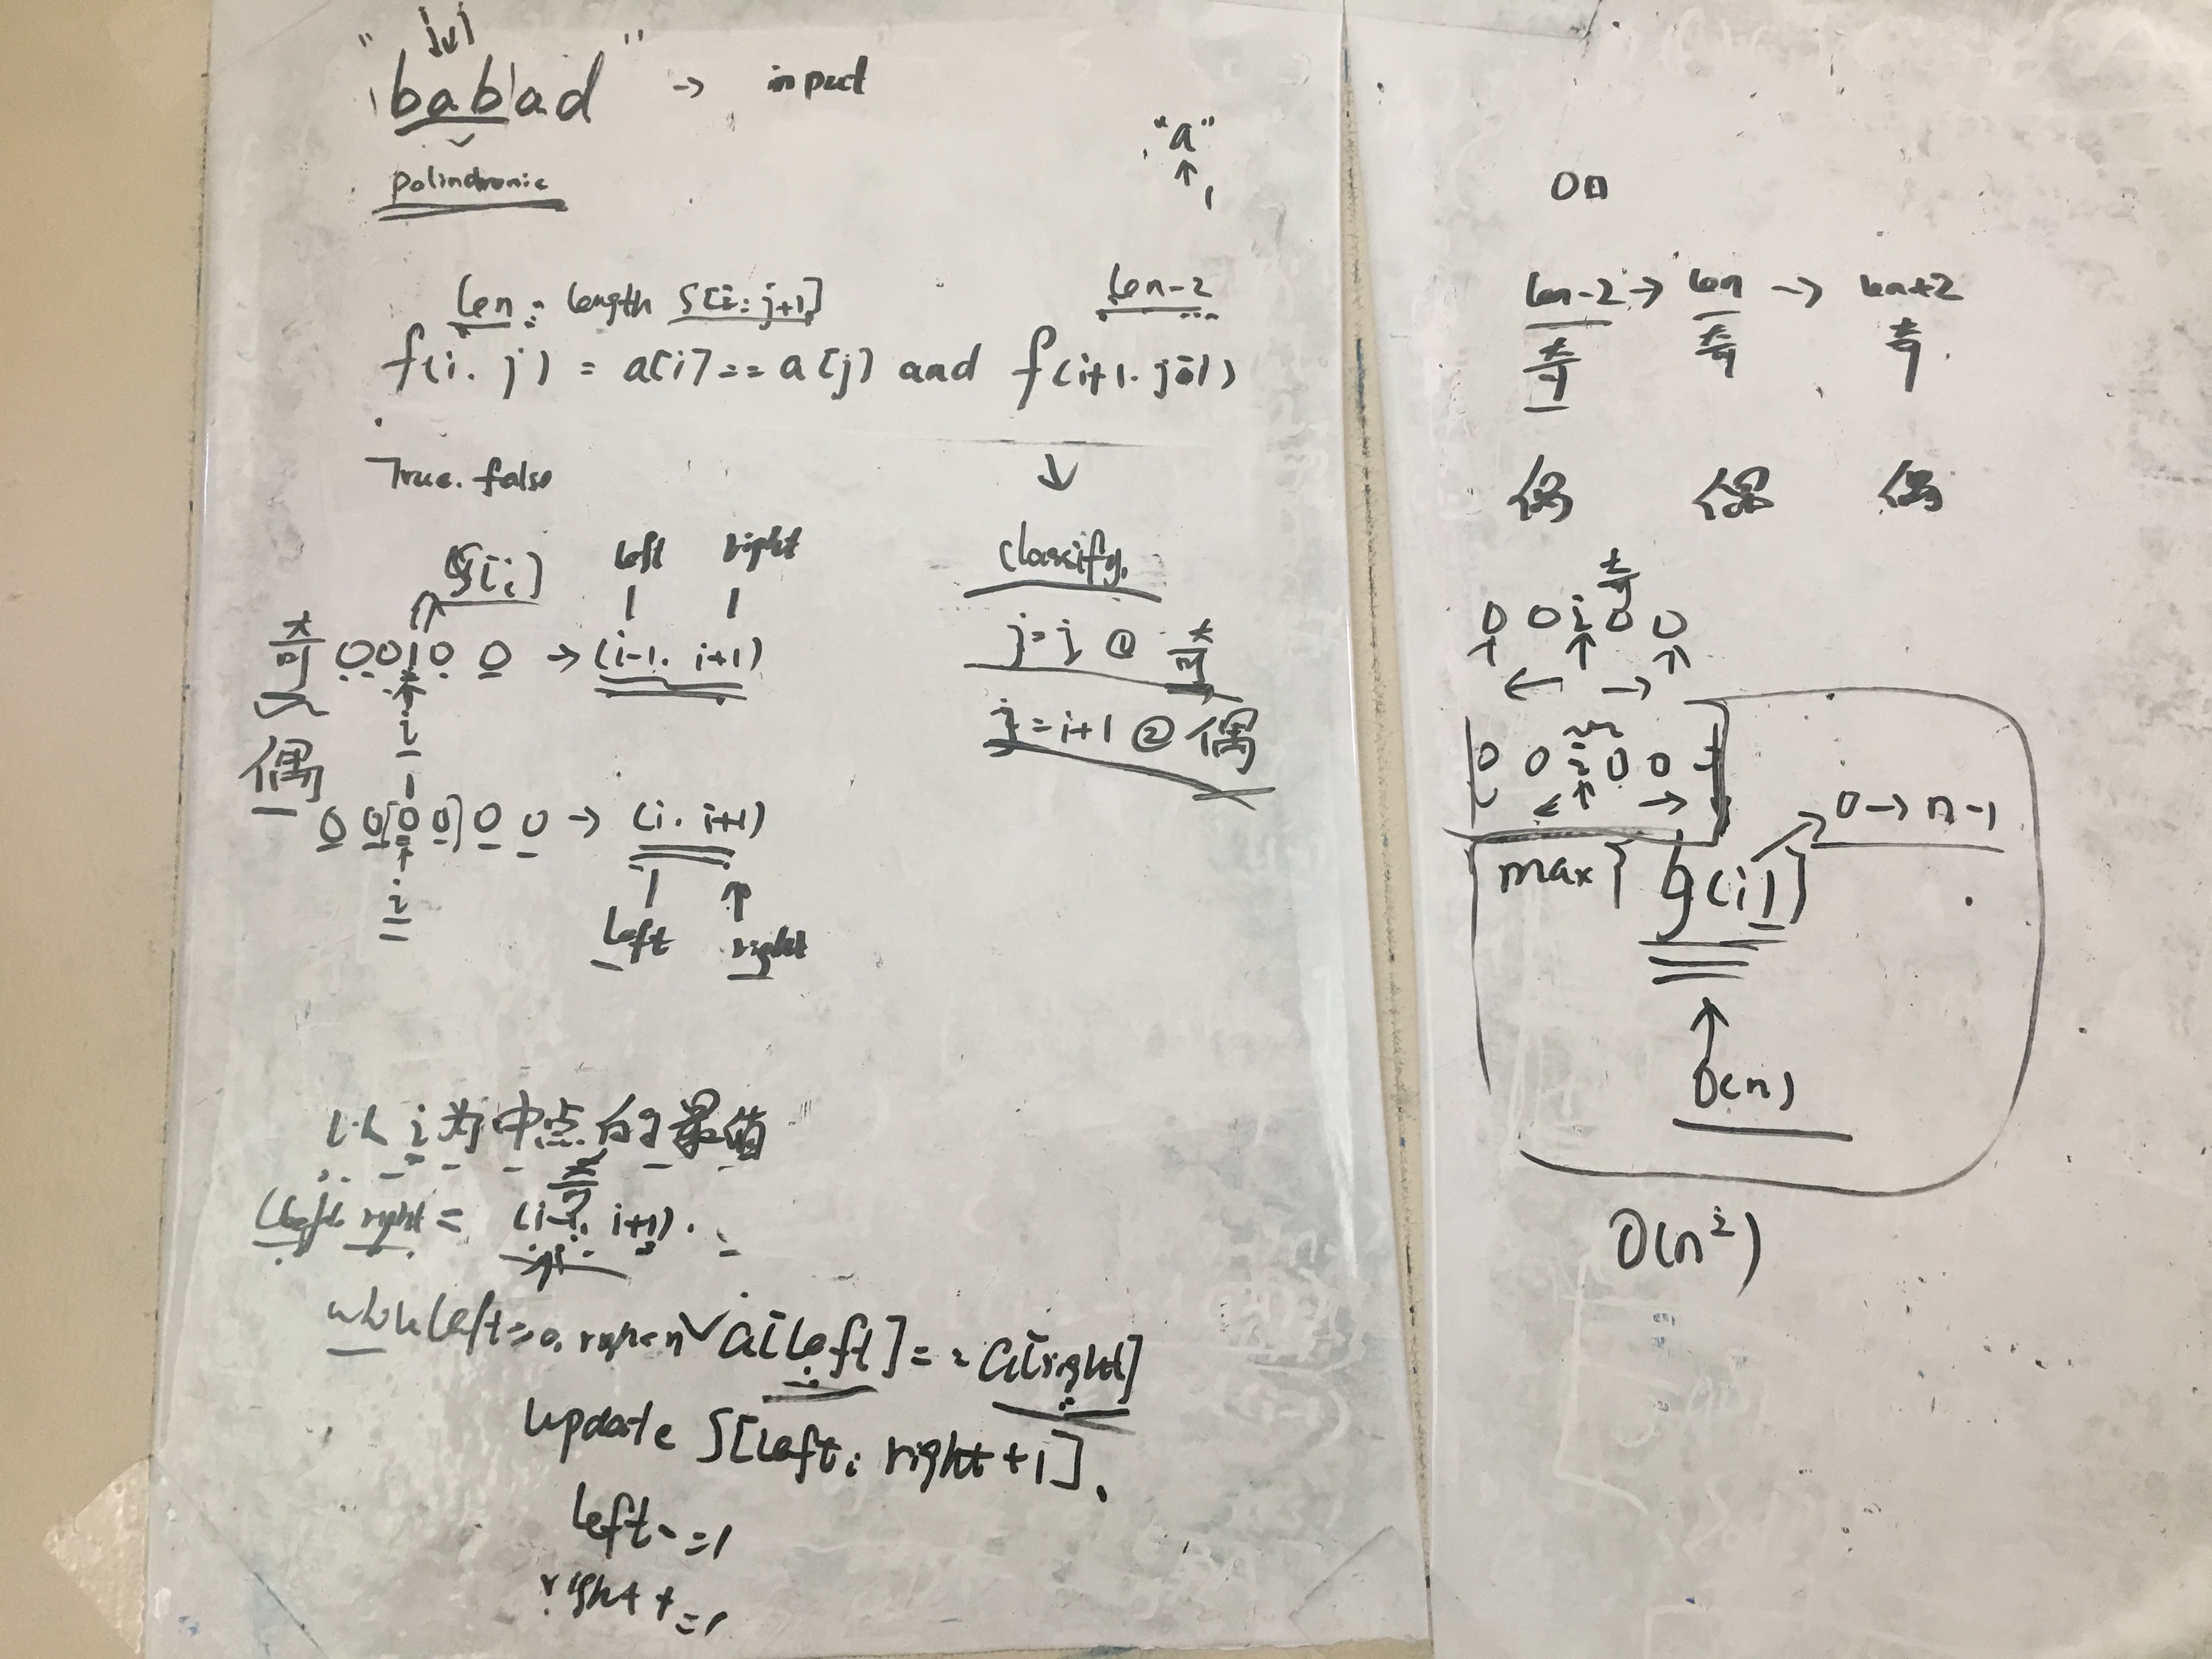 "babad" → input
"a"
↑
polindromic
len: length S[i: j+1]
len-2
f(i. j) = a[i] == a[j] and f(i+1. j-1)
True. false
↓
classify.
S[i]
left right
奇 0 0 i 0 0 → (i-1. i+1)
i
j=i ① 奇
j=i+1 ② 偶
偶
0 0 [0 0] 0 0 → (i. i+1)
i
left right
以 i 为 中点 的 最值
(left. right = (i-1. i+1).
奇
while left>=0. right<n a[left] == a[right]
update S[left: right+1].
left -=1
right +=1
len-2 → len → len+2
奇 奇 奇
偶 偶 偶
奇
0 0 i 0 0
← →
0 0 i 0 0
← →
0 → n-1
max{ g(i)}
↑
O(n)
O(n²)